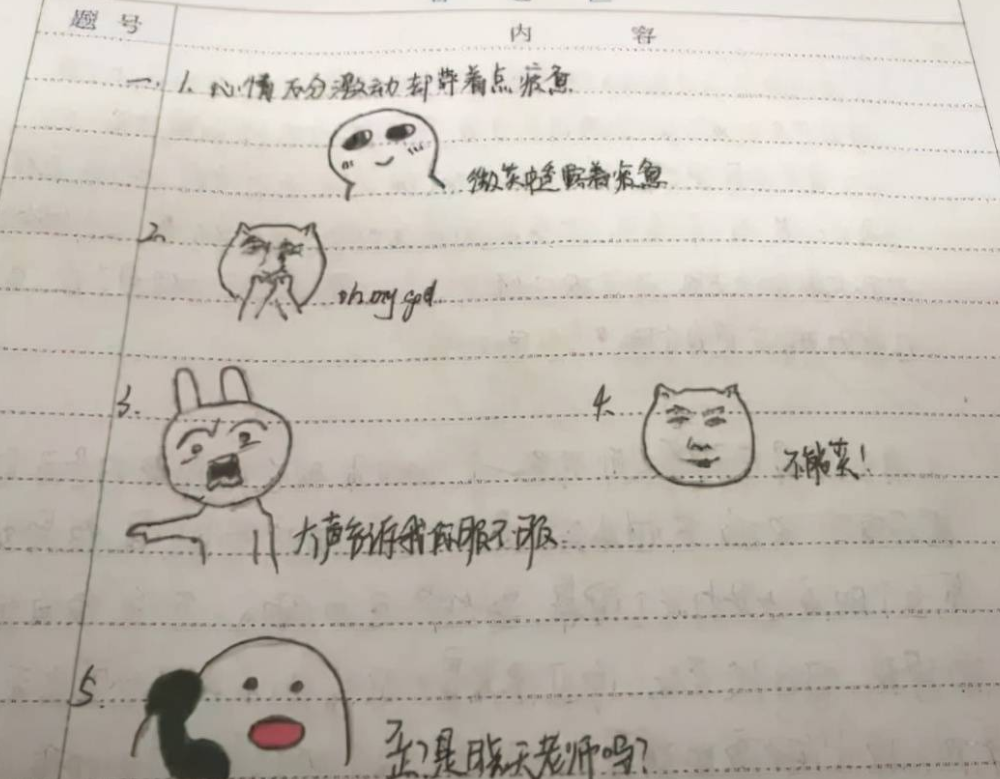 题号
内容
一. 1. 心情十分激动却带着点疲惫
微笑中透露着疲惫
2.
oh my god..
3.
4.
不能笑!
大声告诉我你服不服
5.
歪?是晓天老师吗?